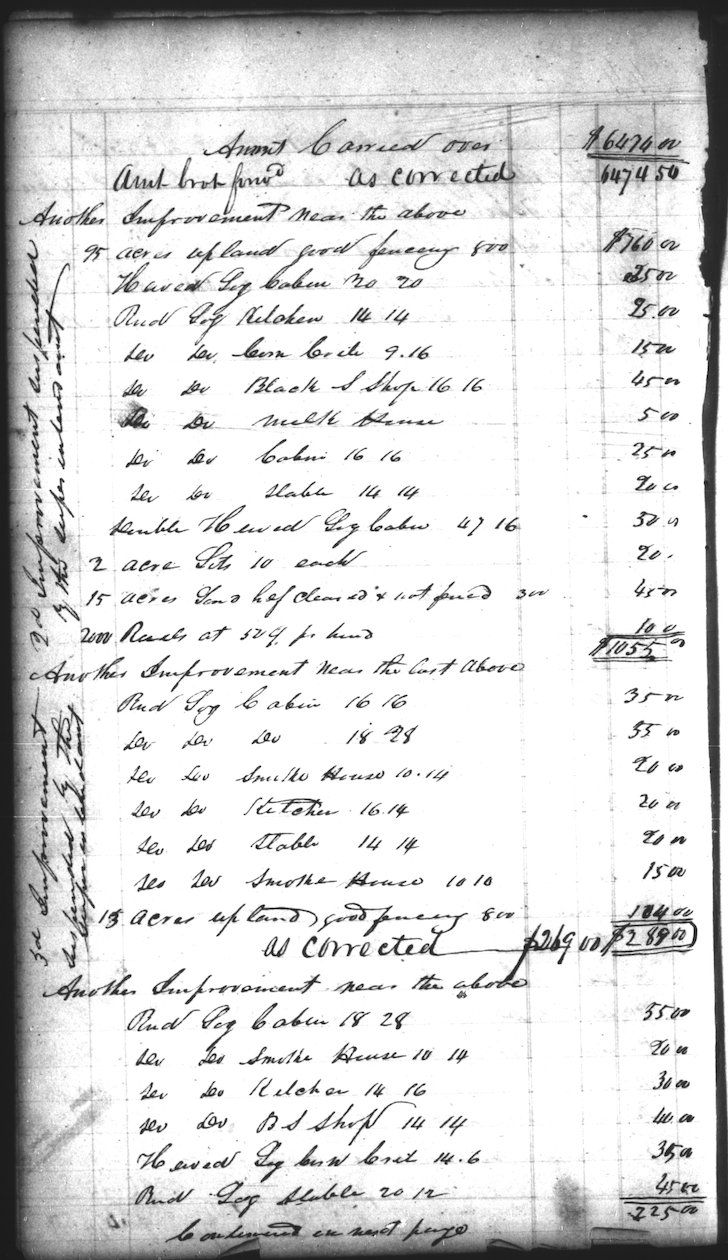 Amnt Carried over $6474 00
Amt brot forwd as corrected 6474 50
Another Improvement near the above
95 acres upland good fencing 800 $760 00
Hewed Log Cabin 20 20 25 00
Rnd Log Kitchen 14 14 25.00
Do Do Corn Crib 9.16 15 00
Do Do Black S Shop 16 16 45 00
Do Do Milk House 5 00
Do Do Cabin 16 16 25 00
Do Do Stable 14 14 20 00
Double Hewed Log Cabin 47 16 50 00
2 acre Lots 10 each 20.
15 acres Land hef cleared & not fenced 300 45 00
2000 Reails at 50 pr hund 10 0
$1055 00
Another Improvement near the last above
Rnd Log Cabin 16 16 35 00
Do Do Do 18 28 55 00
Do Do Smoke House 10.14 20 00
Do Do Kitchen 16.14 20 00
Do Do Stable 14 14 20 00
Do Do Smoke House 10 10 15 00
13 acres upland good fencing 800 104 00
as corrected $269 00 $289 00
Another Improvement near the above
Rnd Log Cabin 18 28 55 00
Do Do Smoke House 10 14 20 00
Do Do Kitchen 14 16 30 00
Do Do B S Shop 14 14 40.00
Hewed Log Corn Crib 14.6 35 00
Rnd Log Stable 20 12 45 00
225 00
Continued on next page
2d Improvement suspended
by the superintendant
3d Improvement
suspended by the
superintendant